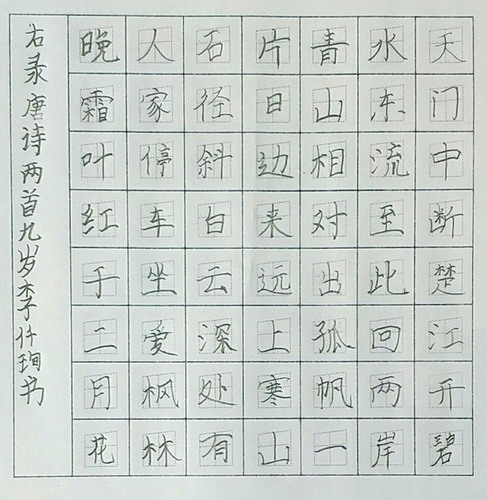 天门中断楚江开碧
水东流至此回两岸
青山相对出孤帆一
片日边来远上寒山
石径斜白云深处有
人家停车坐爱枫林
晚霜叶红于二月花
右录唐诗两首九岁李仟珣书